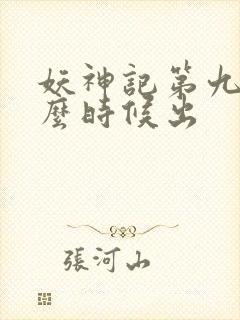 妖神記第九
麼時候出
張河山